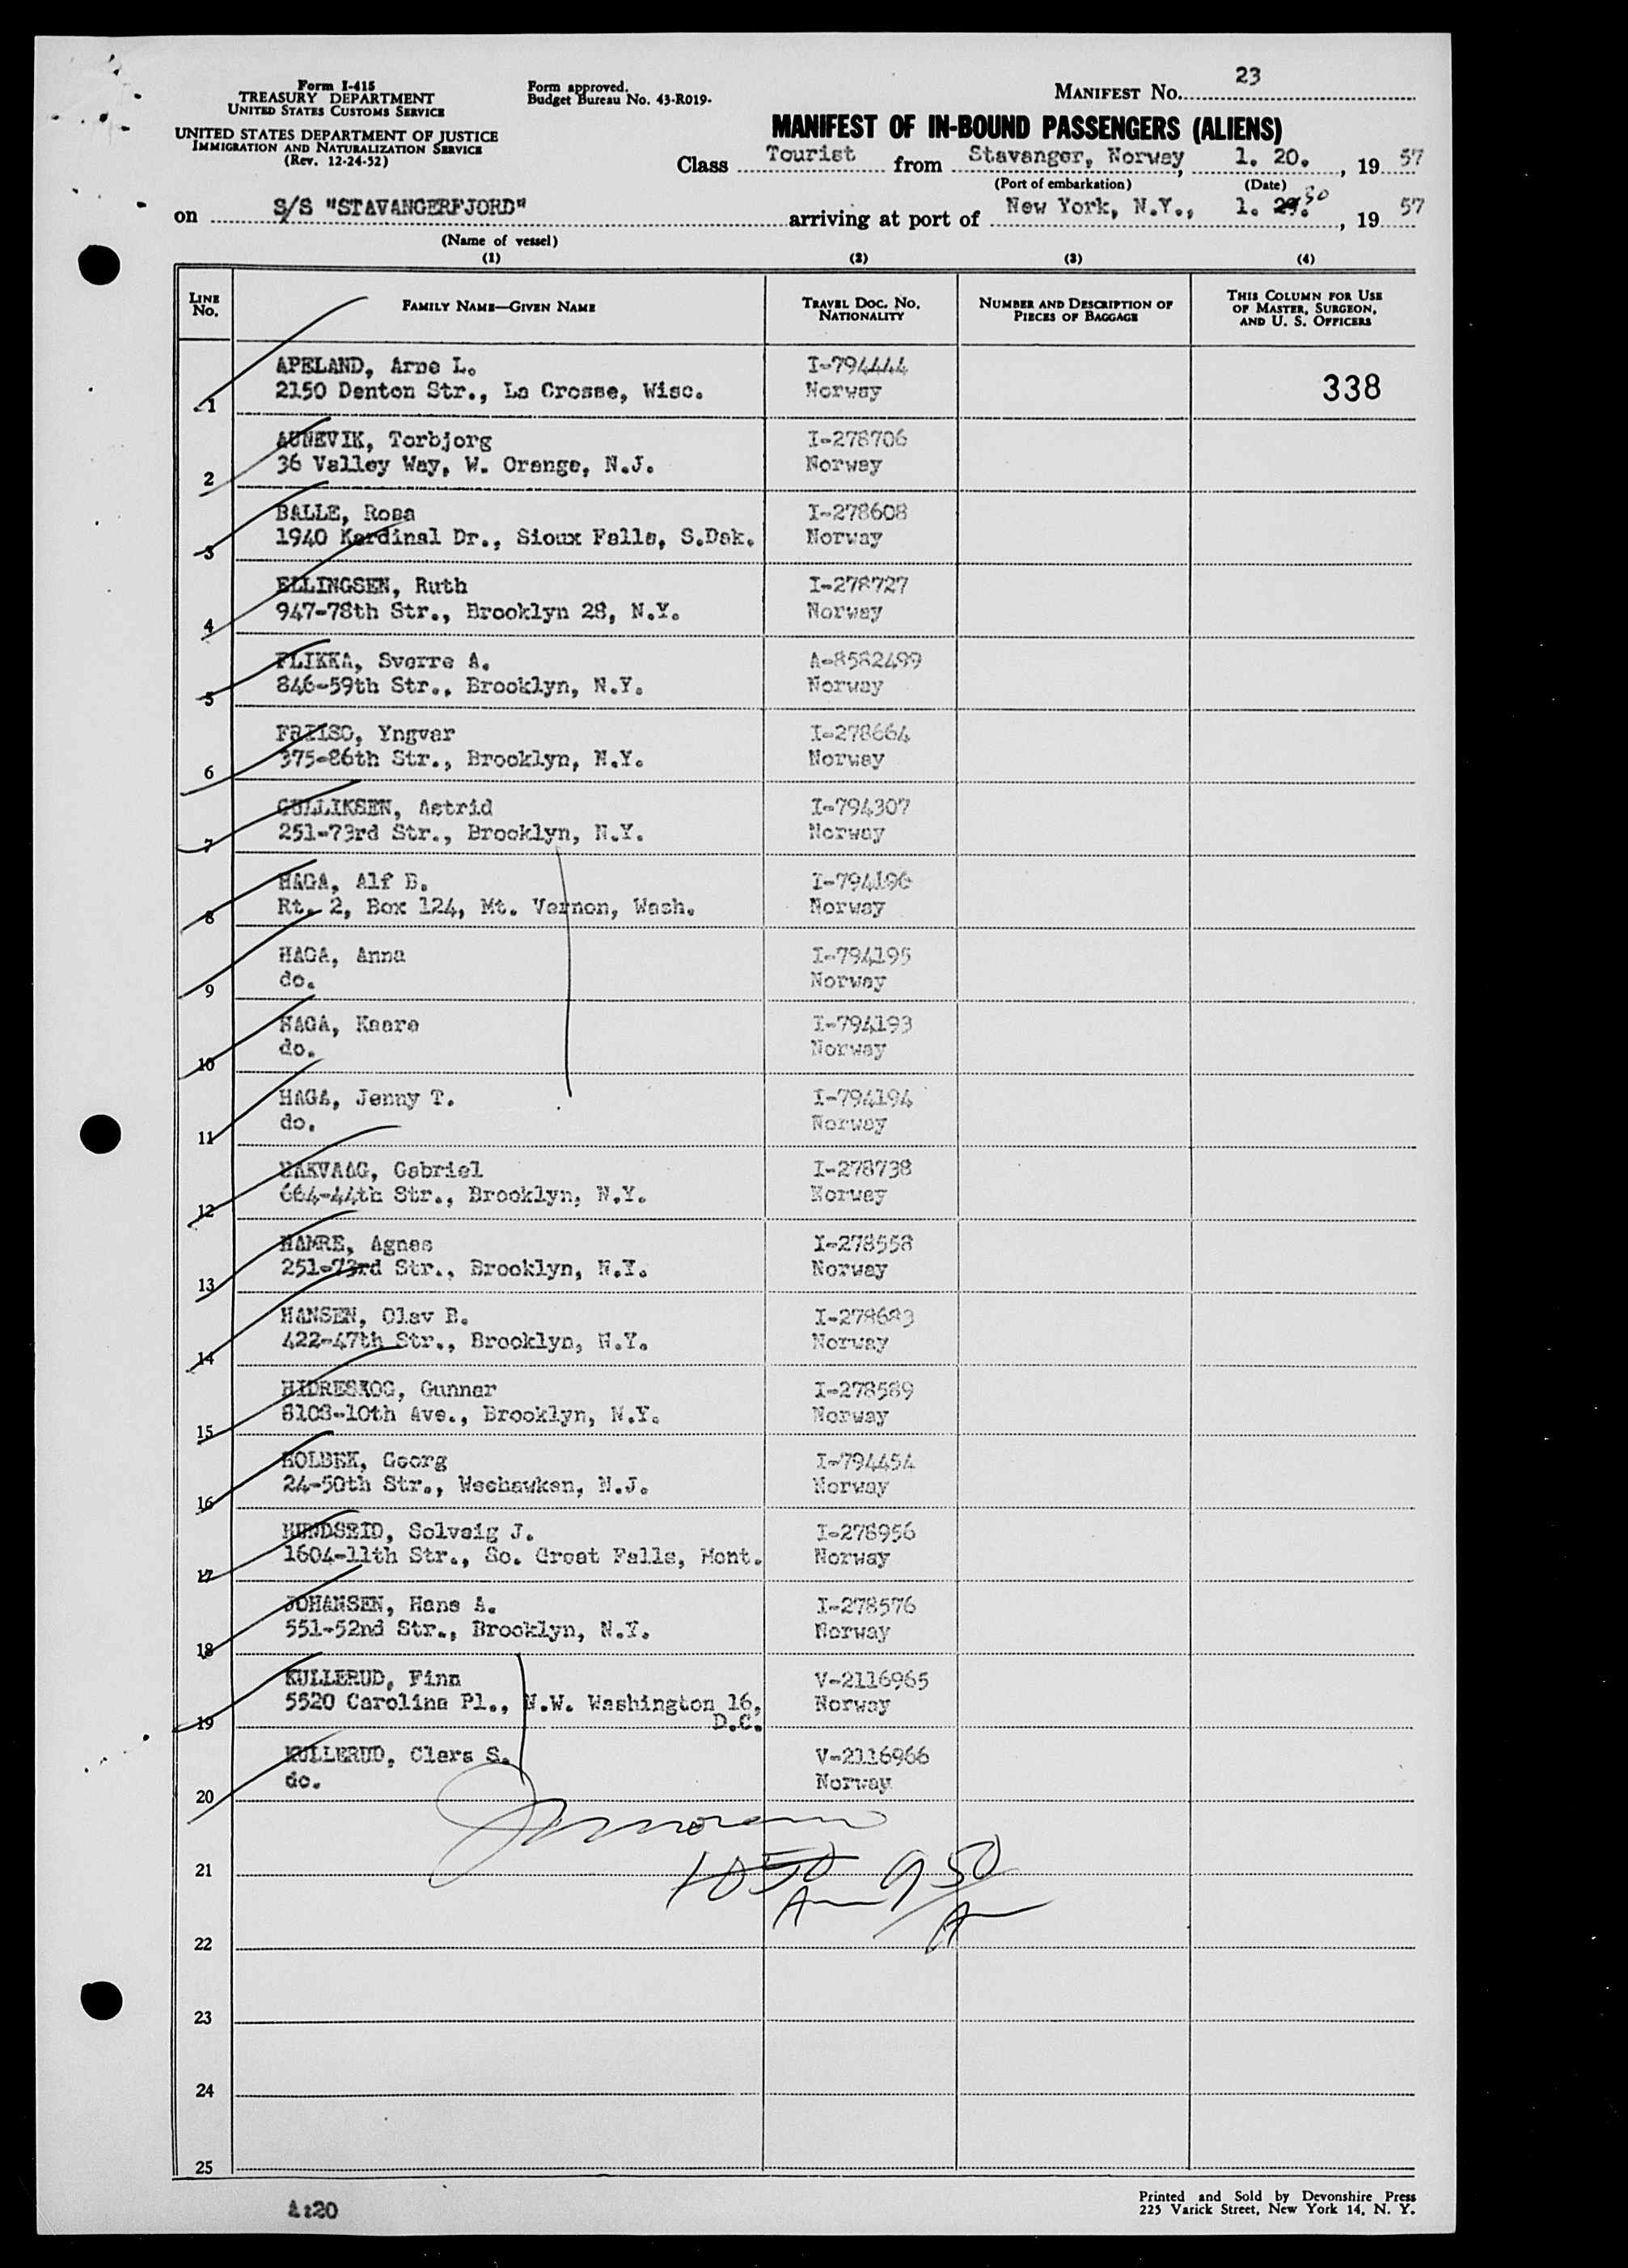 Form I-415
TREASURY DEPARTMENT
UNITED STATES CUSTOMS SERVICE
UNITED STATES DEPARTMENT OF JUSTICE
IMMIGRATION AND NATURALIZATION SERVICE
(Rev. 12-24-52)
Form approved.
Budget Bureau No. 43-R019-
MANIFEST No. 23
MANIFEST OF IN-BOUND PASSENGERS (ALIENS)
Class Tourist from Stavanger, Norway, 1. 20., 19 57
(Port of embarkation) (Date)
on S/S "STAVANGERFJORD" arriving at port of New York, N.Y., 1. 29. 30, 19 57
(Name of vessel)
(1) (2) (3) (4)
LINE No. FAMILY NAME—GIVEN NAME TRAVEL DOC. No. NATIONALITY NUMBER AND DESCRIPTION OF PIECES OF BAGGAGE THIS COLUMN FOR USE OF MASTER, SURGEON, AND U. S. OFFICERS
APELAND, Arne L. I-794444
1 2150 Denton Str., La Crosse, Wisc. Norway 338
AUNEVIK, Torbjorg I-278706
2 36 Valley Way, W. Orange, N.J. Norway
BALLE, Rosa I-278608
3 1940 Kardinal Dr., Sioux Falls, S.Dak. Norway
ELLINGSEN, Ruth I-278727
4 947-78th Str., Brooklyn 28, N.Y. Norway
FLIKKA, Sverre A. A-8582499
5 846-59th Str., Brooklyn, N.Y. Norway
Yngvar I-278664
6 375-86th Str., Brooklyn, N.Y. Norway
GULLIKSEN, Astrid I-794307
7 251-73rd Str., Brooklyn, N.Y. Norway
HAGA, Alf B. I-794196
8 Rt. 2, Box 124, Mt. Vernon, Wash. Norway
HAGA, Anna I-794195
9 do. Norway
HAGA, Kaare I-794193
10 do. Norway
HAGA, Jenny T. I-794194
11 do. Norway
HAKVAAG, Gabriel I-278738
12 664-44th Str., Brooklyn, N.Y. Norway
HAMRE, Agnes I-278558
13 251-73rd Str., Brooklyn, N.Y. Norway
HANSEN, Olav B. I-278683
14 422-47th Str., Brooklyn, N.Y. Norway
HIDRESKOG, Gunnar I-278589
15 8108-10th Ave., Brooklyn, N.Y. Norway
HOLBEK, Georg I-794454
16 24-50th Str., Weehawken, N.J. Norway
HUNDSEID, Solveig J. I-278956
17 1604-11th Str., So. Great Falls, Mont. Norway
JOHANSEN, Hans A. I-278576
18 551-52nd Str., Brooklyn, N.Y. Norway
KULLERUD, Finn V-2116965
19 5520 Carolina Pl., N.W. Washington 16, D.C. Norway
KULLERUD, Clara S. V-2116966
20 do. Norway
21 1050 950
22
23
24
25
A:20
Printed and Sold by Devonshire Press
225 Varick Street, New York 14, N. Y.